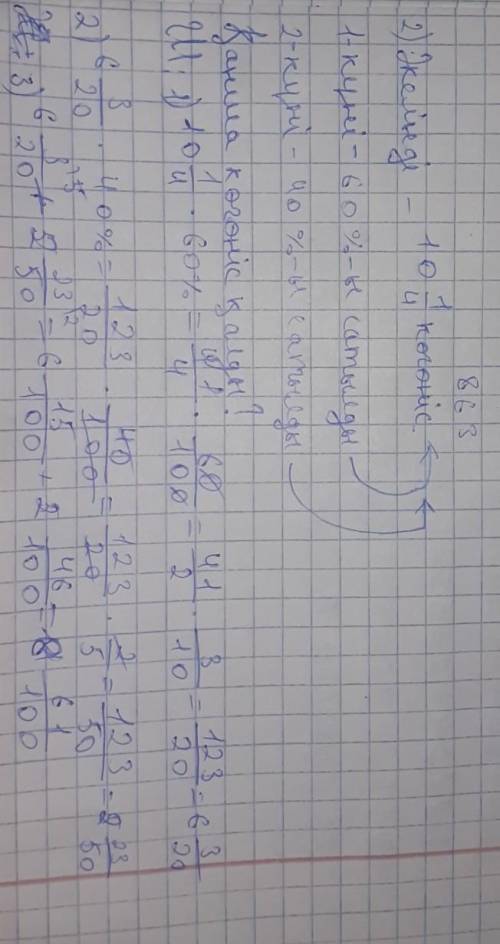 863
2) Әкелінді - 10 1/4 көгөніс.
1-күні - 60%-ы сатылды
2-күні - 40%-ы сатылды
Қанша көгөніс қалды?
Ш: 1) 10 1/4 · 60% = 41/4 · 60/100 = 41/2 · 3/10 = 123/20 = 6 3/20
2) 6 3/20 · 40% = 123/20 · 40/100 = 123/20 · 2/5 = 123/50 = 2 23/50
3) 6 3/20 + 2 23/50 = 6 15/100 + 2 46/100 = 8 61/100